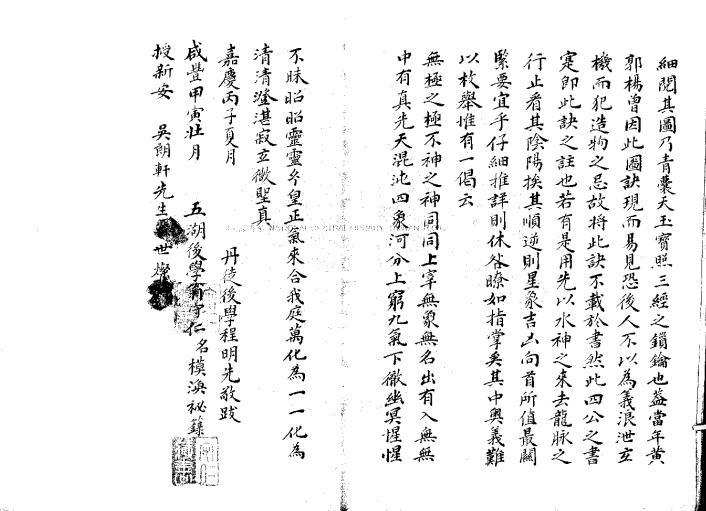 細閱其圖乃青囊天玉寶照三經之鎖鑰也蓋當年黃
郭楊曾因此圖訣現而易見恐後人不以為義浪泄玄
機而犯造物之忌故將此訣不載於書然此四公之書
寔即此訣之註也若有是用先以水神之來去龍脉之
行止看其陰陽挨其順逆則星象吉凶向首所值最關
緊要宜乎仔細推詳則休咎瞭如指掌矣其中奧義難
以枚舉惟有一偈云
無極之極不神之神同同上宰無象無名出有入無無
中有真先天混沌四象河分上窮九氣下徹幽冥惺惺
不昧昭昭靈靈皇正氣來合我庭萬化為一一化為
清清澄湛寂立徹聖真
嘉慶丙子夏月 丹徒後學程明先敬跋
咸豐甲寅壯月 五湖後學守仁名模渙秘籙
授新安 吳朗軒先生世燦